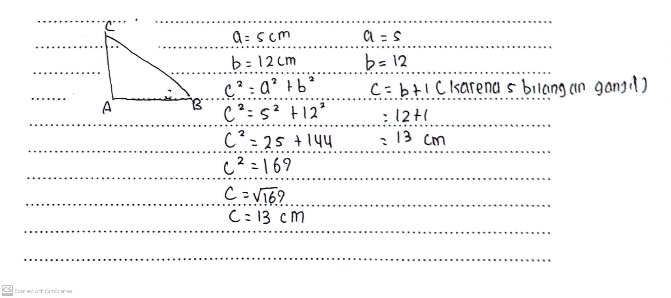 C
A
B
a = 5 cm
b = 12 cm
c² = a² + b²
c² = 5² + 12²
c² = 25 + 144
c² = 169
c = √169
c = 13 cm
a = 5
b = 12
c = b + 1 (karena 5 bilangan ganjil)
= 12 + 1
= 13 cm
CS Scanned with CamScanner